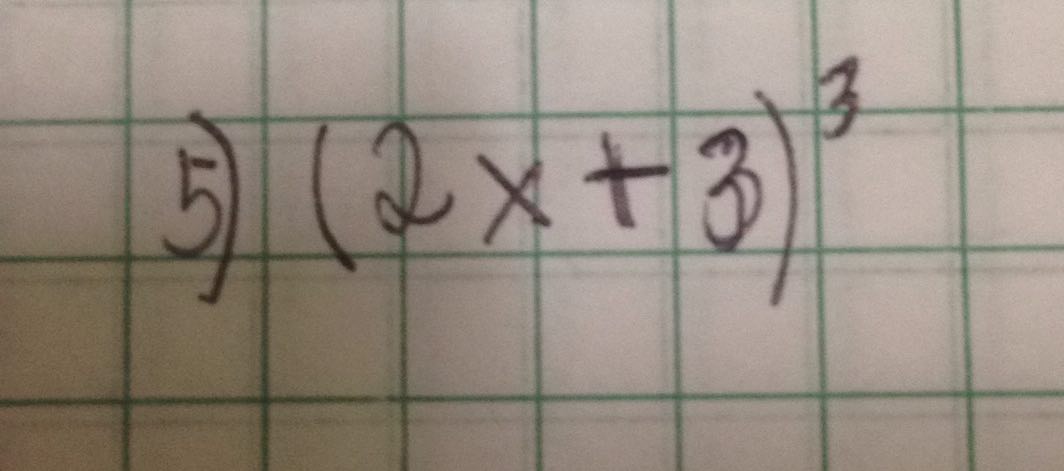 5) (2x+3)³